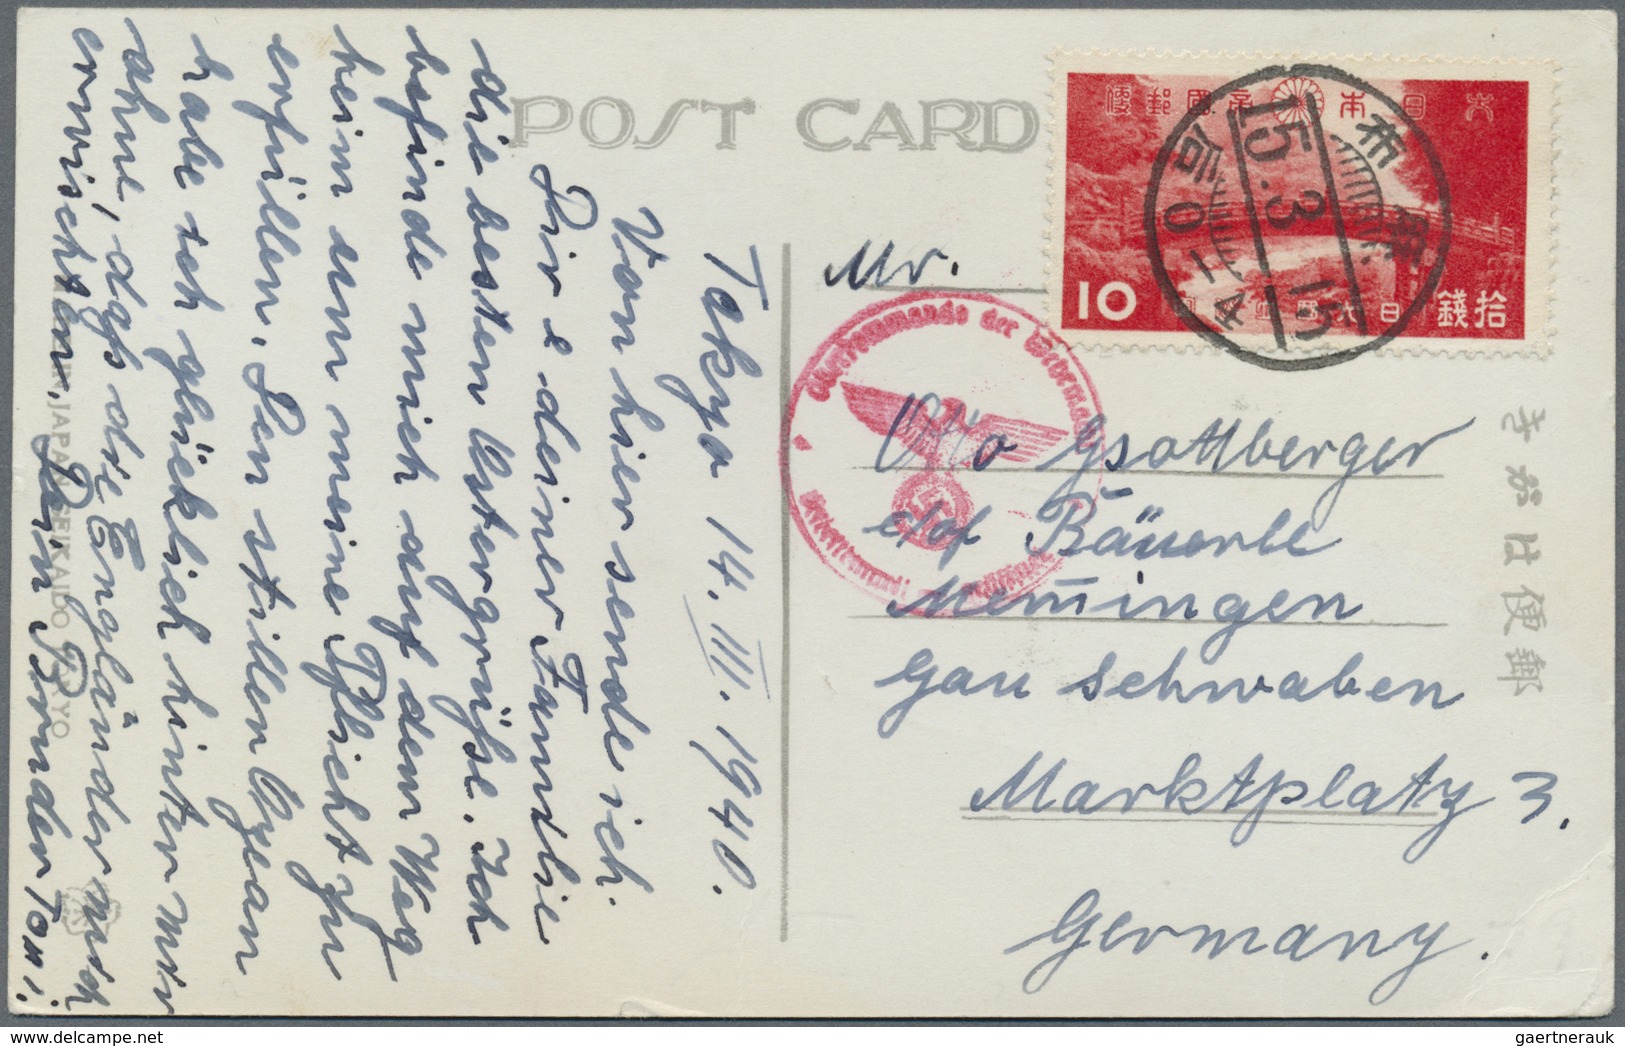 POST CARD
大日本帝國郵便
10
拾錢
15.3.15
Mr.
Oberkommando der Wehrmacht
Otto Gsottberger
Bäuerle
Memmingen
Gau Schwaben
Marktplatz 3.
Germany.
きがは便郵
Tokyo 14. III. 1940.
Von hier sende ich
Dir & deiner Familie
die besten Ostergrüsse. Ich
befinde mich auf dem Weg
heim um meine Pflicht zu
erfüllen. Den stillen Ozean
habe ich glücklich hinter mir
ohne, dass die Engländer mich
erwischten.
Dein Bruder Toni.
JAPAN SEIKAIDO TOKYO
gaertnerauk @ delcampe.net